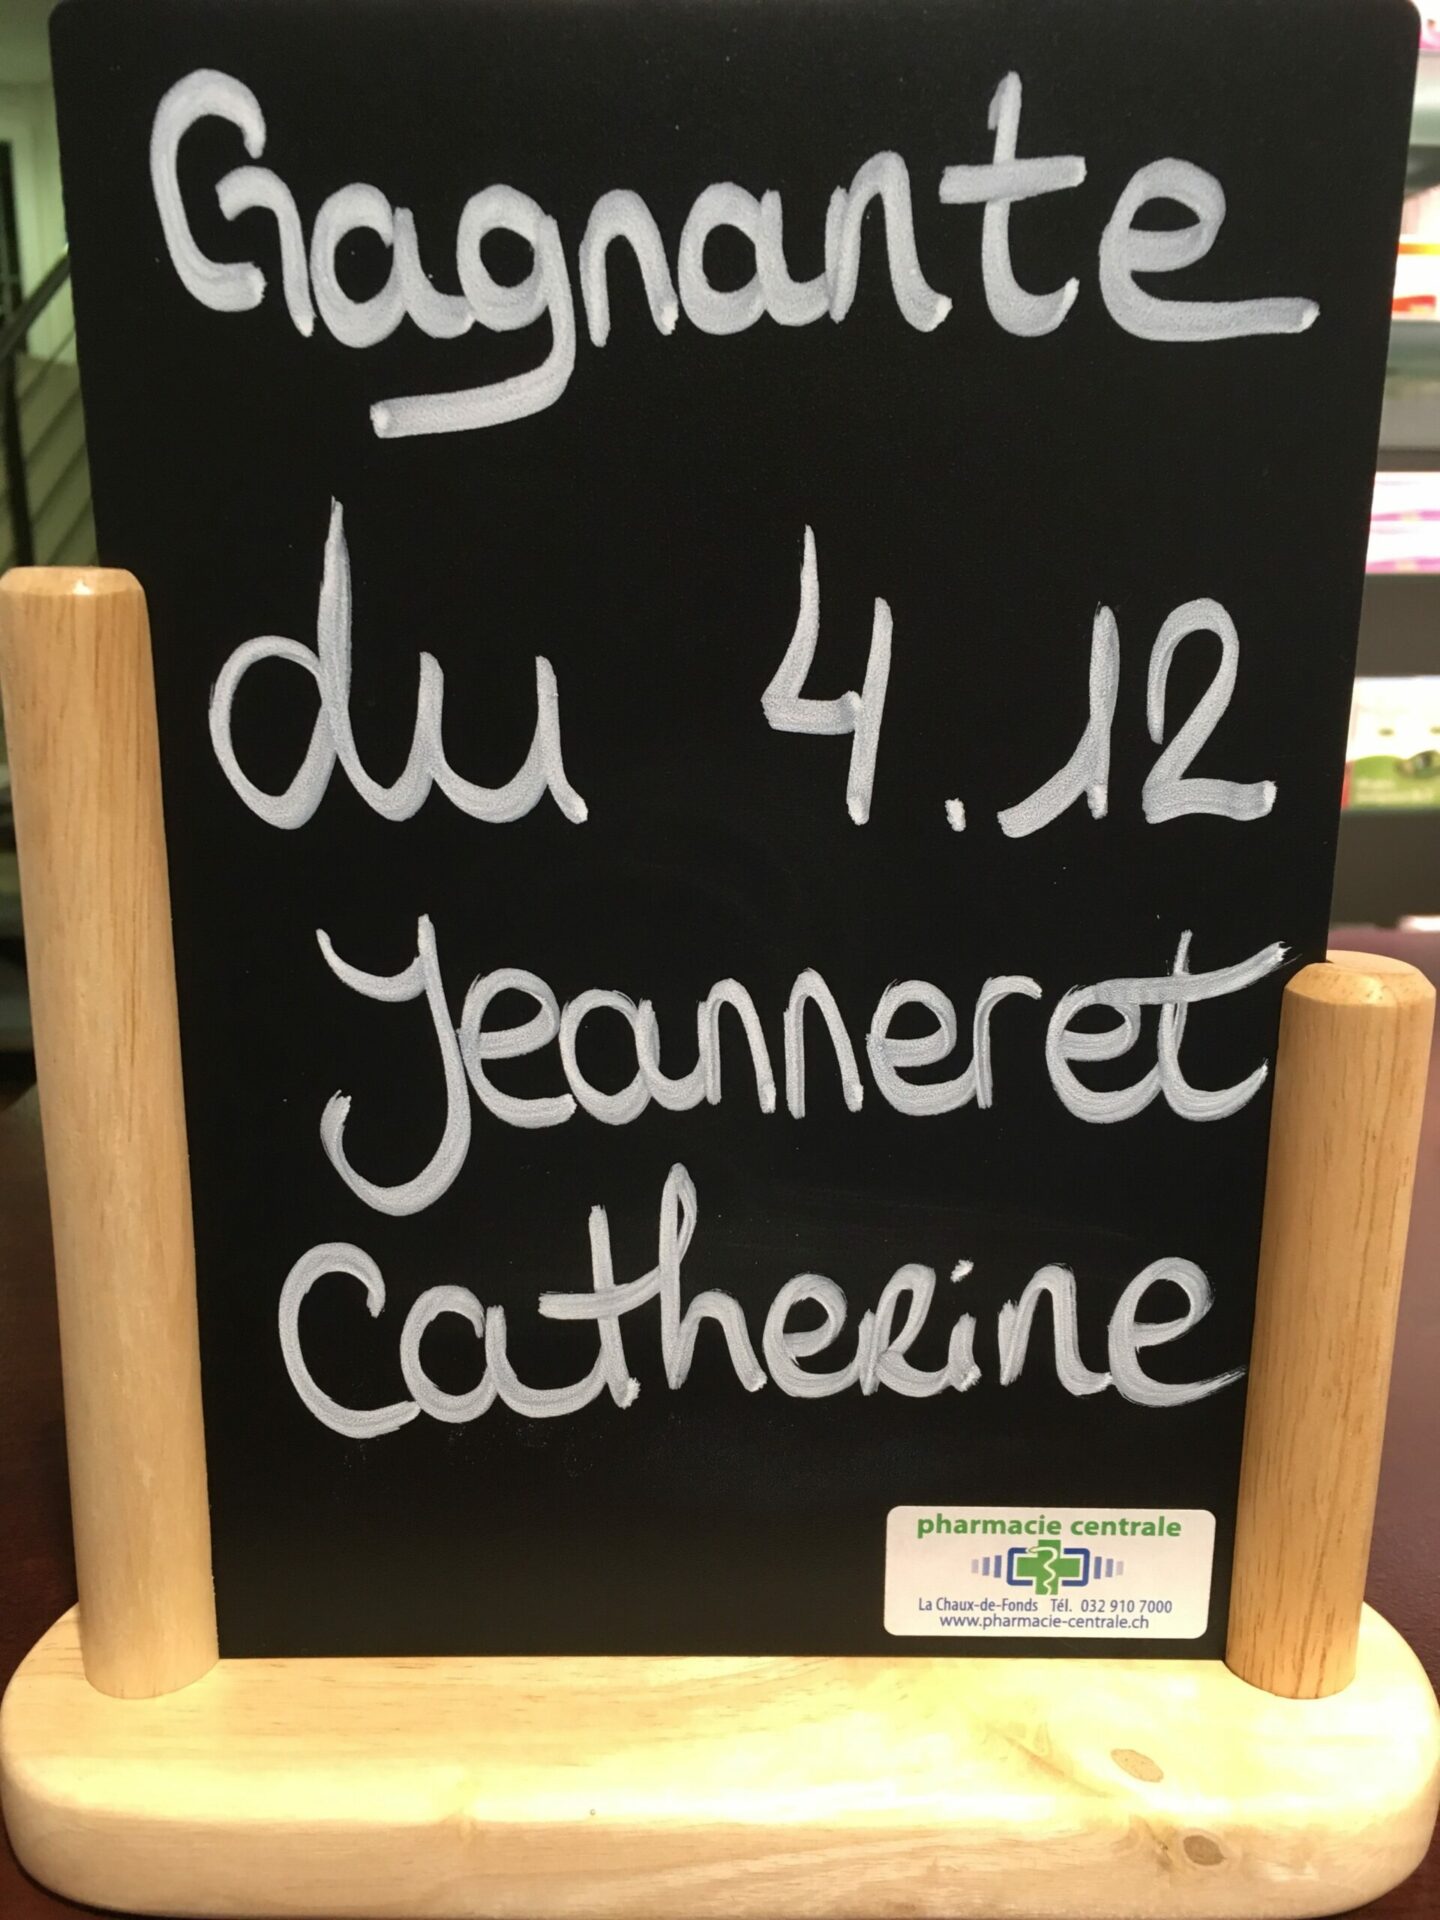 Gagnante
du 4.12
Jeanneret
Catherine
pharmacie centrale
La Chaux-de-Fonds Tél. 032 910 7000
www.pharmacie-centrale.ch